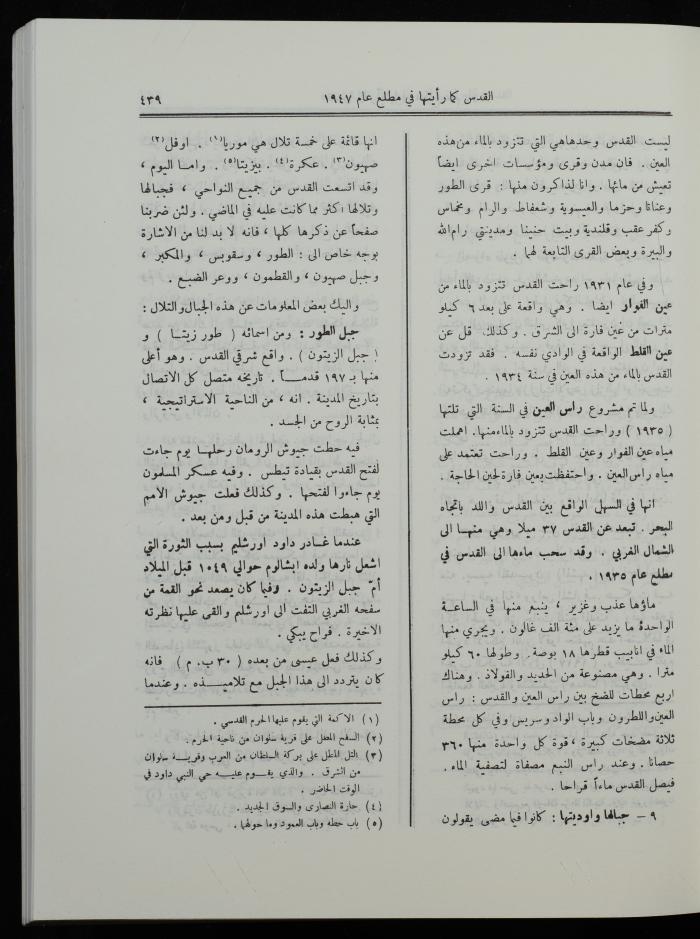 القدس كما رأيتها في مطلع عام ١٩٤٧
٤٣٩
ليست القدس وحدهاهي التي تتزود بالماء من هذه
العين . فان مدن وقرى ومؤسسات اخرى ايضاً
تعيش من مائها . وانا لذاكرون منها : قرى الطور
وعناتا وحزما والعيسوية وشعفاط والرام ومخماس
وكفر عقب وقلندية وبيت حنينا ومدينتي رام الله
والبيرة وبعض القرى التابعة لهما .
وفي عام ١٩٣١ راحت القدس تتزود بالماء من
عين الفوار ايضا . وهي واقعة على بعد ٦ كيلو
مترات من عين فارة الى الشرق . وكذلك قل عن
عين القلط الواقعة في الوادي نفسه . فقد تزودت
القدس بالماء من هذه العين في سنة ١٩٣٤ .
ولما تم مشروع راس العين في السنة التي تلتها
( ١٩٣٥ ) وراحت القدس تتزود بالماء منها . اهملت
مياه عين الفوار وعين القلط . وراحت تعتمد على
مياه راس العين . واحتفظت بعين فارة لحين الحاجة .
انها في السهل الواقع بين القدس واللد باتجاه
البحر . تبعد عن القدس ٣٧ ميلا وهي منها الى
الشمال الغربي . وقد سحب ماءها الى القدس في
مطلع عام ١٩٣٥ .
ماؤها عذب وغزير ، ينبع منها في الساعة
الواحدة ما يزيد على مئة الف غالون . ويجري منها
الماء في انابيب قطرها ١٨ بوصة . وطولها ٦٠ كيلو
مترا . وهي مصنوعة من الحديد والفولاذ . وهناك
اربع محطات للضخ بين راس العين والقدس : راس
العين واللطرون وباب الواد وسريس وفي كل محطة
ثلاثة مضخات كبيرة ، قوة كل واحدة منها ٣٦٠
حصانا . وعند راس النبع مصفاة لتصفية الماء .
فيصل القدس ماءاً قراحا .
٩ – جبالها واوديتها : كانوا فيما مضى يقولون
انها قائمة على خمسة تلال هي موريا(١) . اوفل(٢)
صهيون(٣) . عكرة(٤) . بيزيتا(٥) . واما اليوم ،
وقد اتسعت القدس من جميع النواحي ، فجبالها
وتلالها اكثر مما كانت عليه في الماضي . ولئن ضربنا
صفحاً عن ذكرها كلها ، فانه لا بد لنا من الاشارة
بوجه خاص الى : الطور ، وسقوبس ، والمكبر ،
وجبل صهيون ، والقطمون ، ووعر الضبع .
واليك بعض المعلومات عن هذه الجبال والتلال :
جبل الطور : ومن اسمائه ( طور زيتا ) و
( جبل الزيتون ) . واقع شرقي القدس . وهو أعلى
منها بـ ١٩٧ قدماً . تاريخه متصل كل الاتصال
بتاريخ المدينة . انه ، من الناحية الاستراتيجية ،
بمثابة الروح من الجسد .
فيه حطت جيوش الرومان رحلها يوم جاءت
لفتح القدس بقيادة تيطس . وفيه عسكر المسلمون
يوم جاءوا لفتحها . وكذلك فعلت جيوش الامم
التي هبطت هذه المدينة من قبل ومن بعد .
عندما غادر داود اورشليم بسبب الثورة التي
اشعل نارها ولده ابشالوم حوالي ١٠٤٩ قبل الميلاد
أمّ جبل الزيتون . وفيما كان يصعد نحو القمة من
سفحه الغربي التفت الى اورشليم والقى عليها نظرته
الاخيرة . فراح يبكي .
وكذلك فعل عيسى من بعده ( ٣٠ ب. م ) فانه
كان يتردد الى هذا الجبل مع تلاميذه . وعندما
(١) الاكمة التي يقوم عليها الحرم القدسي .
(٢) السفح المطل على قرية سلوان من ناحية الحرم .
(٣) التل المطل على بركة السلطان من الغرب وقرية سلوان
من الشرق . والذي يقوم عليه حي النبي داود في
الوقت الحاضر .
(٤) حارة النصارى والسوق الجديد .
(٥) باب حطه وباب العمود وما حولهما .